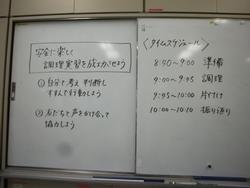 安全に楽しく
調理実習を成功させよう
① 自分で考え 判断し
すすんで行動しよう
② 友だちと声をかけ合って
協力しよう
〈タイムスケジュール〉
8:50〜9:00 準備
9:00〜9:45 調理
9:45〜10:00 片付け
10:00〜10:10 振り返り